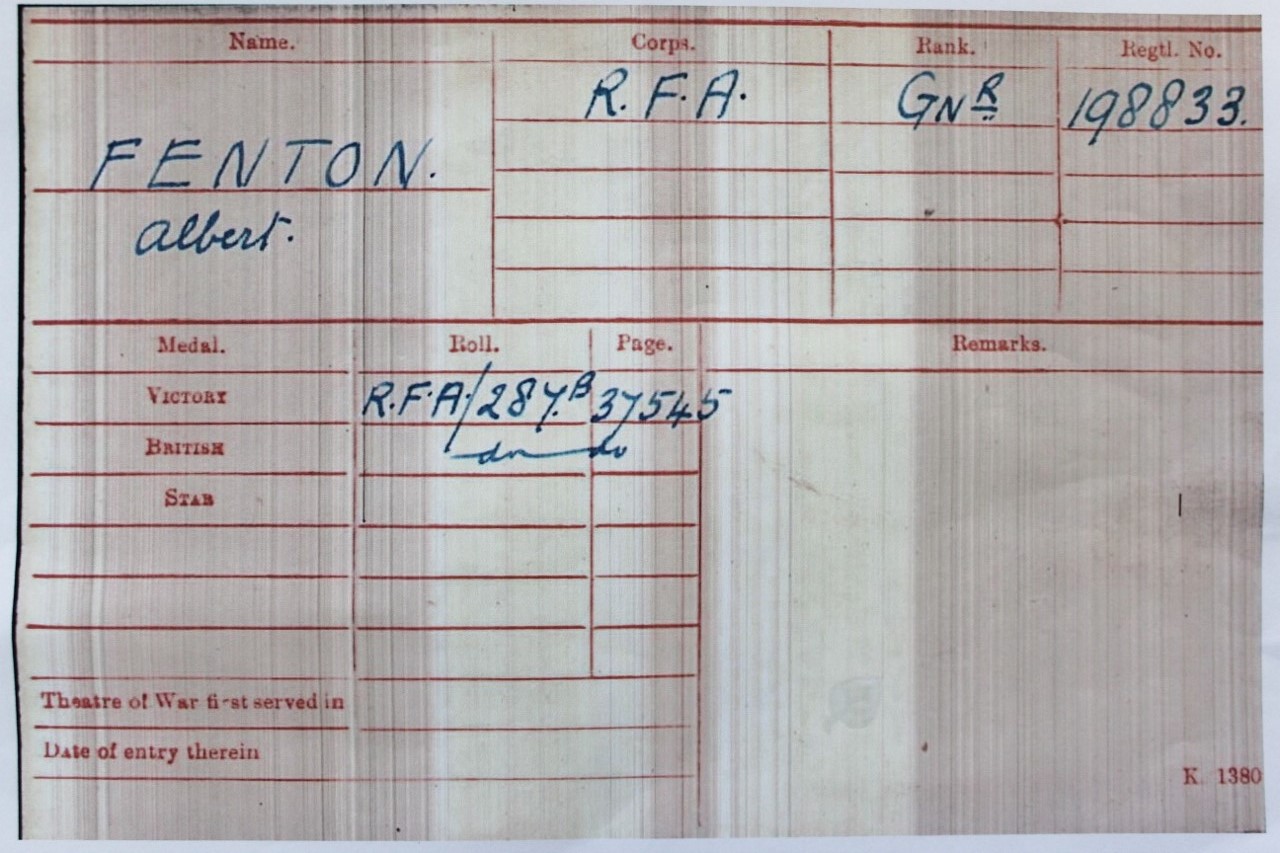 Name. Corps. Rank. Regtl. No.
R. F. A. GNR 198833.
FENTON.
Albert.
Medal. Roll. Page. Remarks.
VICTORY R.F.A/287.B 37545
BRITISH do do
STAR
Theatre of War first served in
Date of entry therein
K. 1380